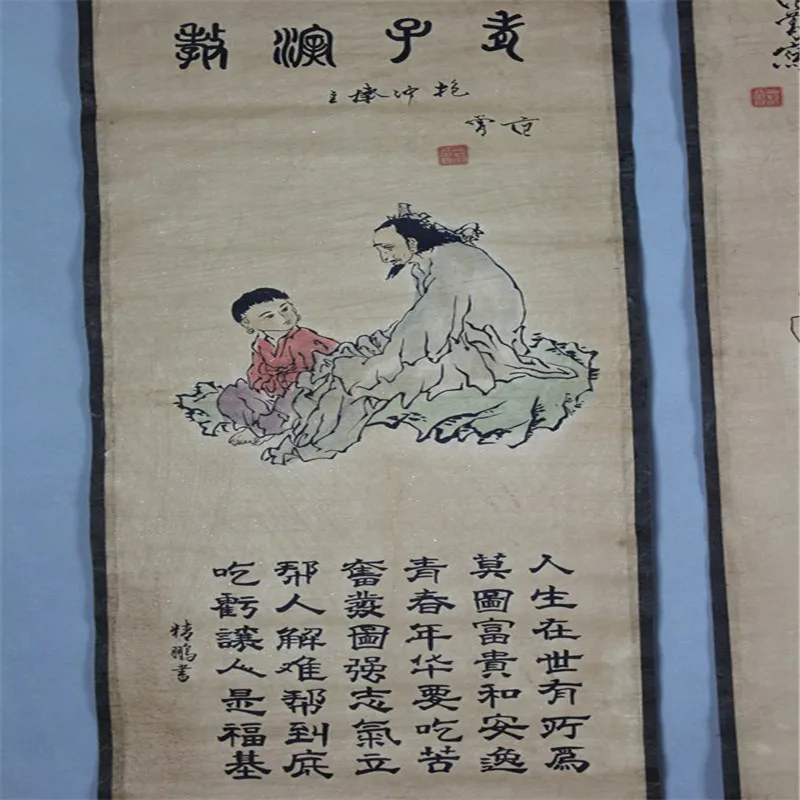 老子演教
范曾
人生在世有所爲
莫圖富貴和安逸
青春年华要吃苦
奮發圖强志氣立
帮人解难帮到底
吃虧讓人是福基
精鵬書